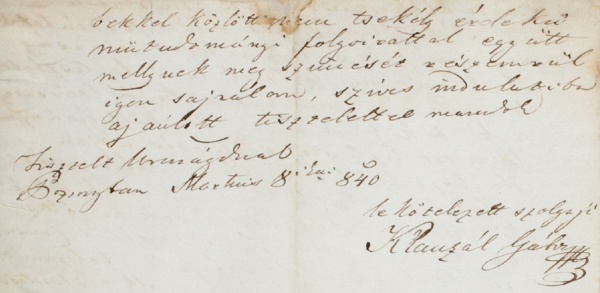 bekkel közlött nem tsekély érdekű
műtudományi folyóirattal együtt
mellynek meg szünését részemrül
igen sajnálom, szives indulatiba
ajánlott tisztelettel maradok
Tisztelt Uraságodnak
Pozsonyban Martius 8 840
le kötelezett szolgájé
Klauzál Gábor